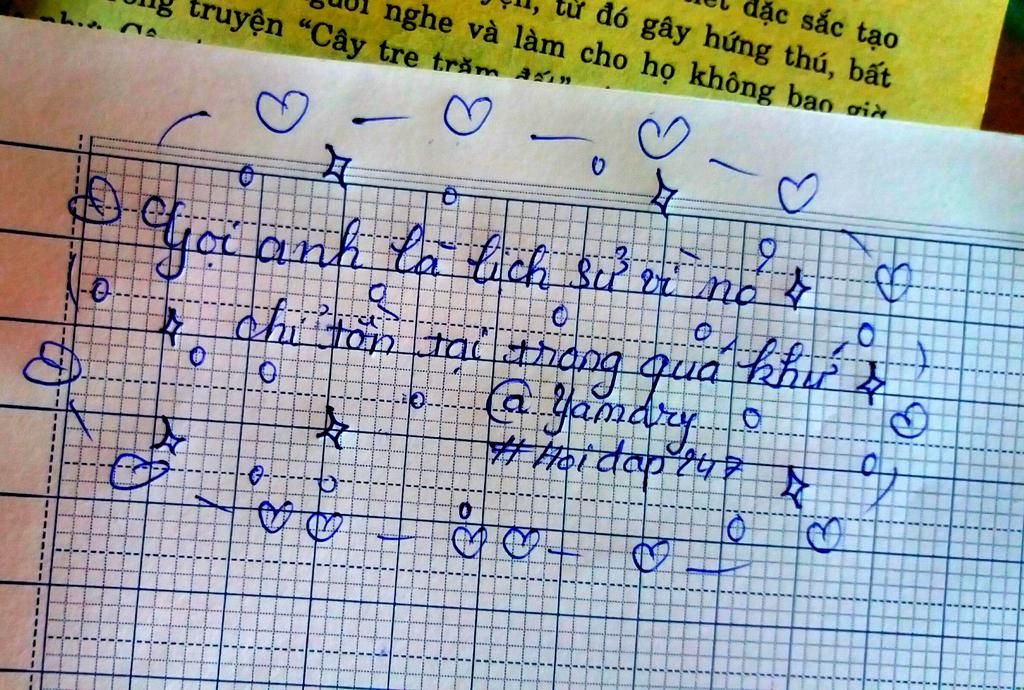 đặc sắc tạo
từ đó gây hứng thú, bất
truyện “Cây tre trăm đốt” nghe và làm cho họ không bao giờ
Gọi anh là lịch sử vì nó
chỉ tồn tại trong quá khứ
@ Yamdry
#Hoidap247